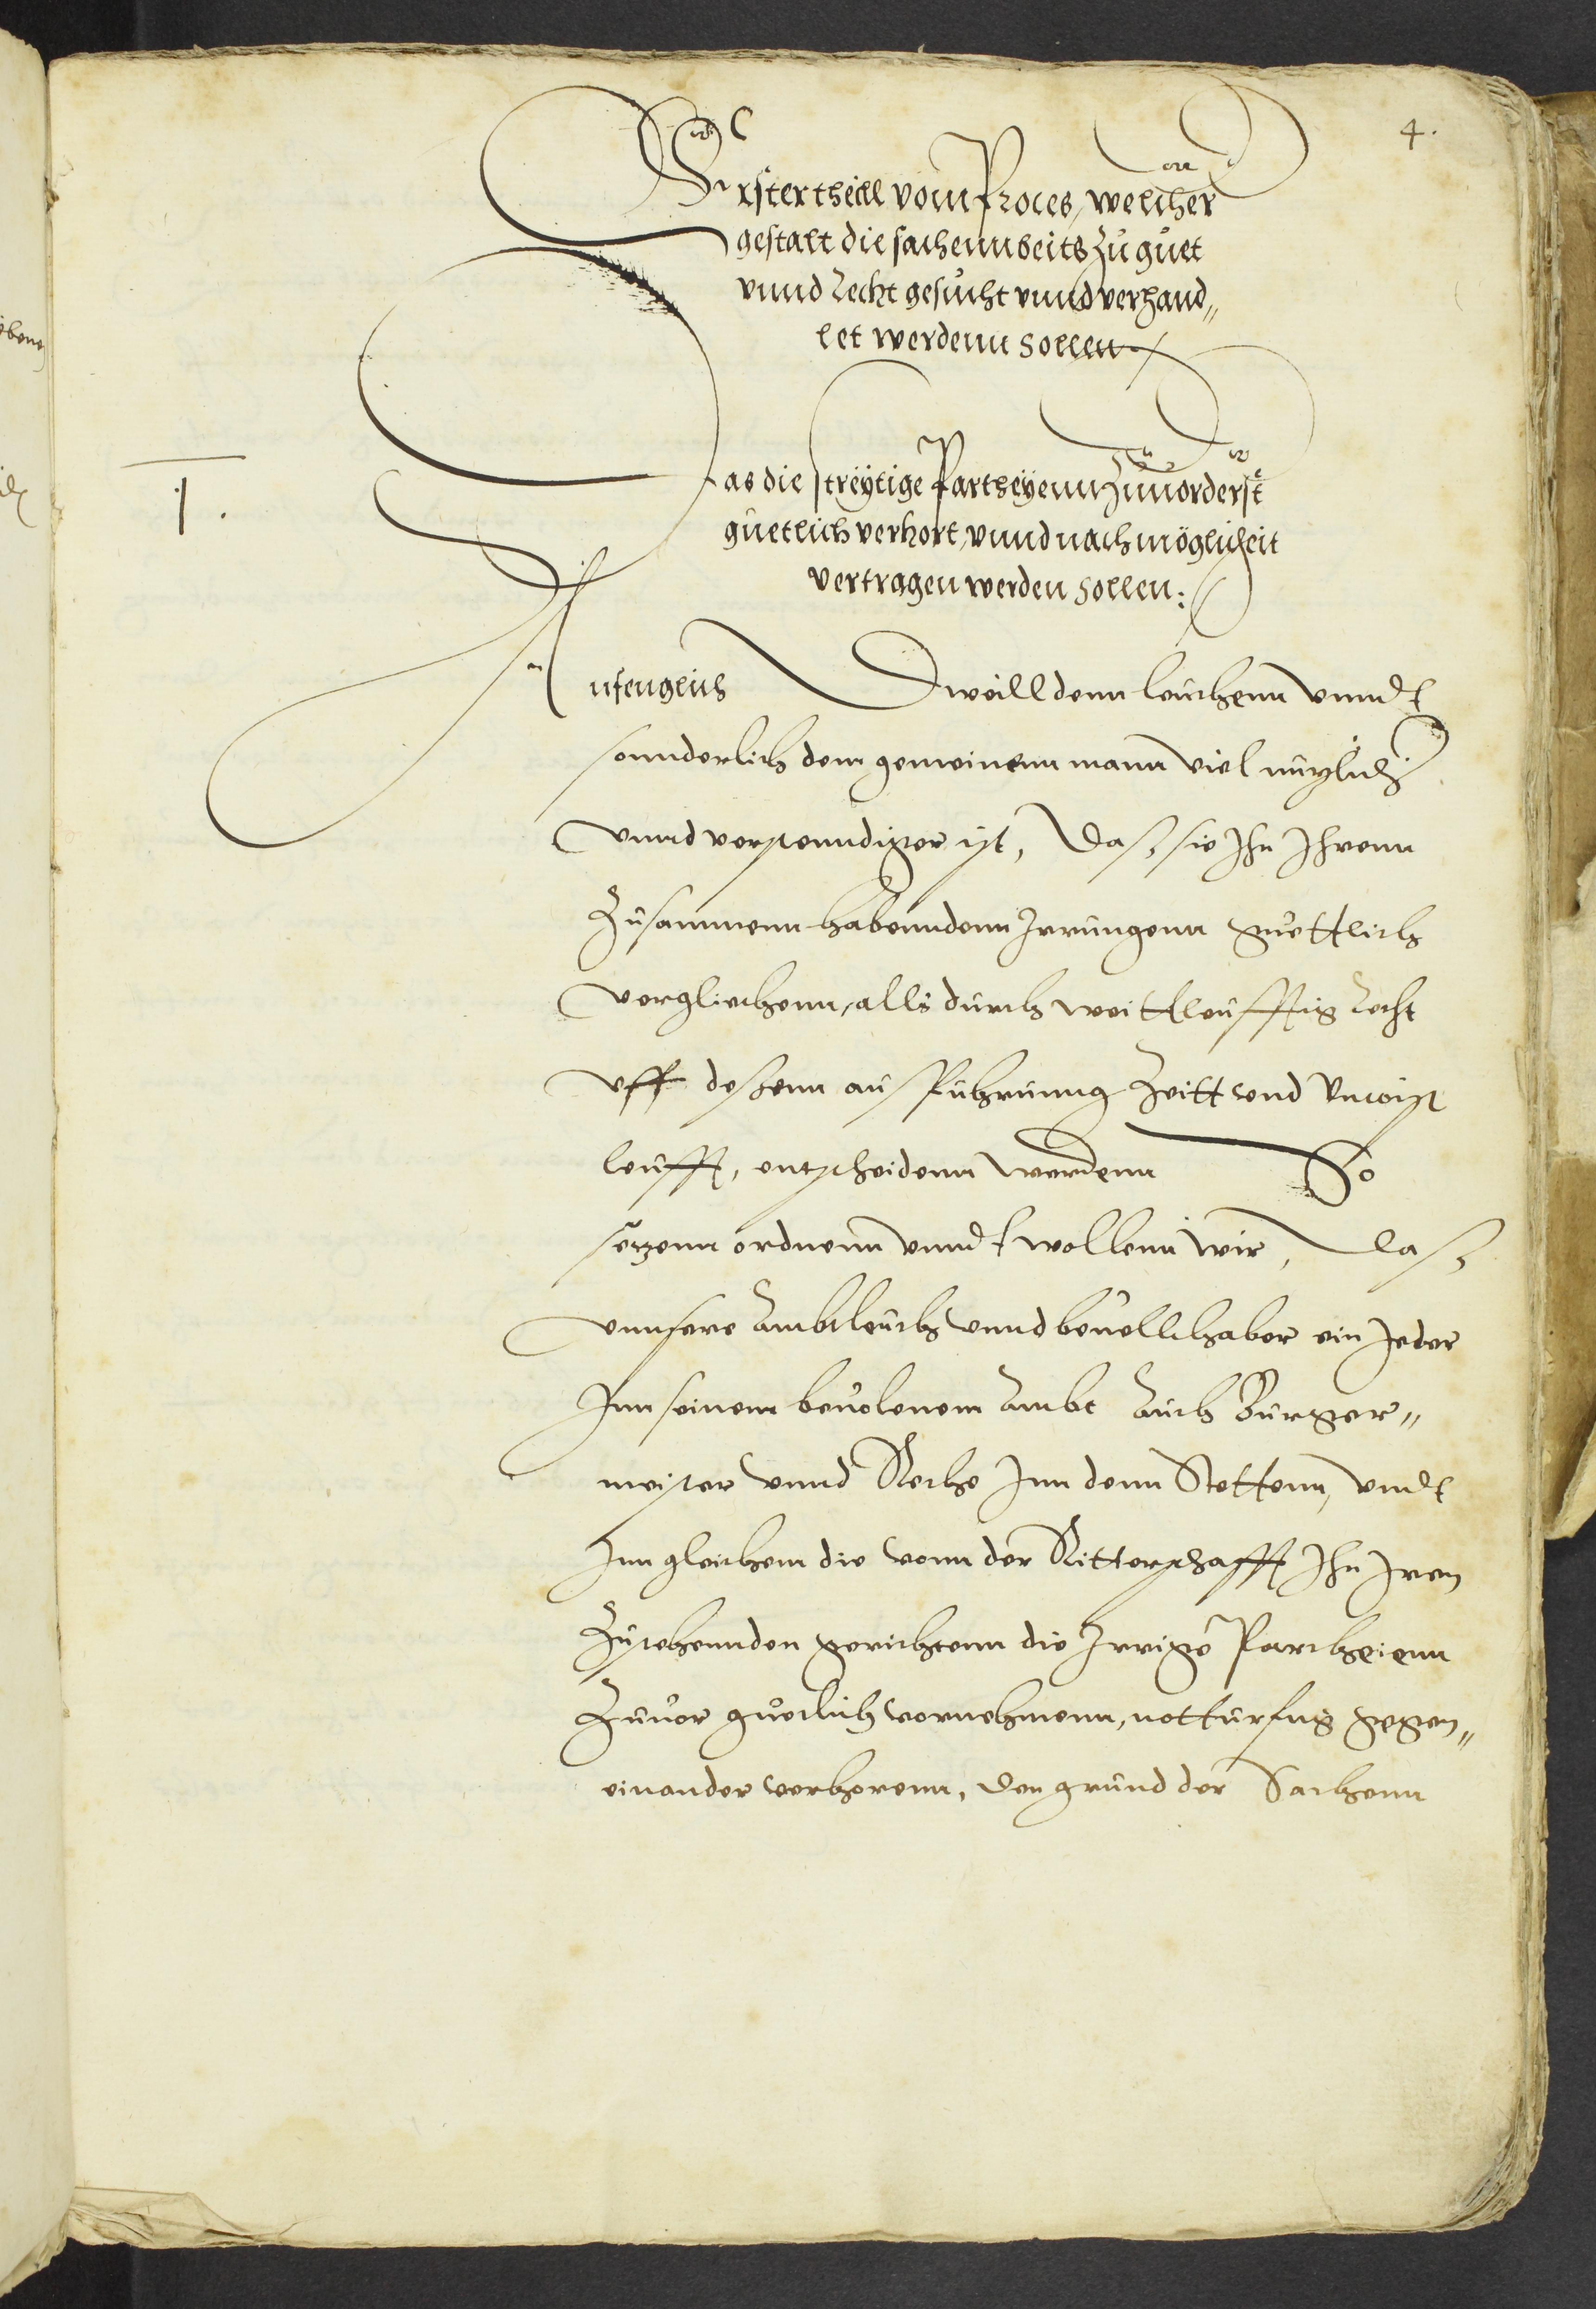 4.
Erster theill vom Proces, welcher
gestalt die sachenn beits zu guet
vnnd Recht gesucht vnnd verhand„
let werdenn sollen
1.
Das die streÿtige Partheÿenn zuuorderst
guetlich verhort, vnnd nach möglicheit
vertragen werden sollen:
Anfenglich Dweill denn leuthenn vnndt
sonnderlich dem gemeinenn mann viel nutzlich
vnnd verstenndiger ist, daß sie Ihn Ihrenn
zusammenn habenndenn Irrungenn guettlich
verglichenn, alls durch weittleufftig Recht
vff deßenn ausfuhrunng Zeitt vnd Vncost
leufft, entscheidenn werdenn So
setzenn ordnenn vnndt wollenn wir, daß
vnnsere Ambtleuth vnnd beuelhhaber ein Jeder
Inn seinem beuolenem Ambt Auch Burger„
meister vnnd Rethe Inn denn Stettenn, vndt
Inn gleichem die vonn der Ritterschafft Ihn Iren
zustehennden gerichtenn die Irrige Partheienn
zuuor guetlich vornehmenn, notturftig gegen„
einander verhorenn, den grund der Sachenn